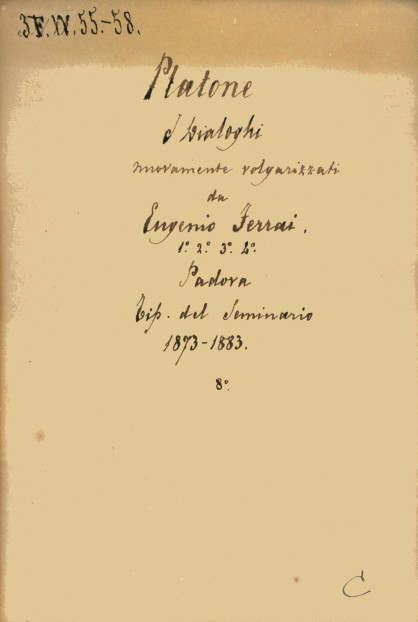 3.F.W.55.-58.
Platone
I Dialoghi
nuovamente volgarizzati
da
Eugenio Ferrai.
1º. 2º. 3º. 4º.
Padova
Tip. del Seminario
1873-1883.
8º.
C